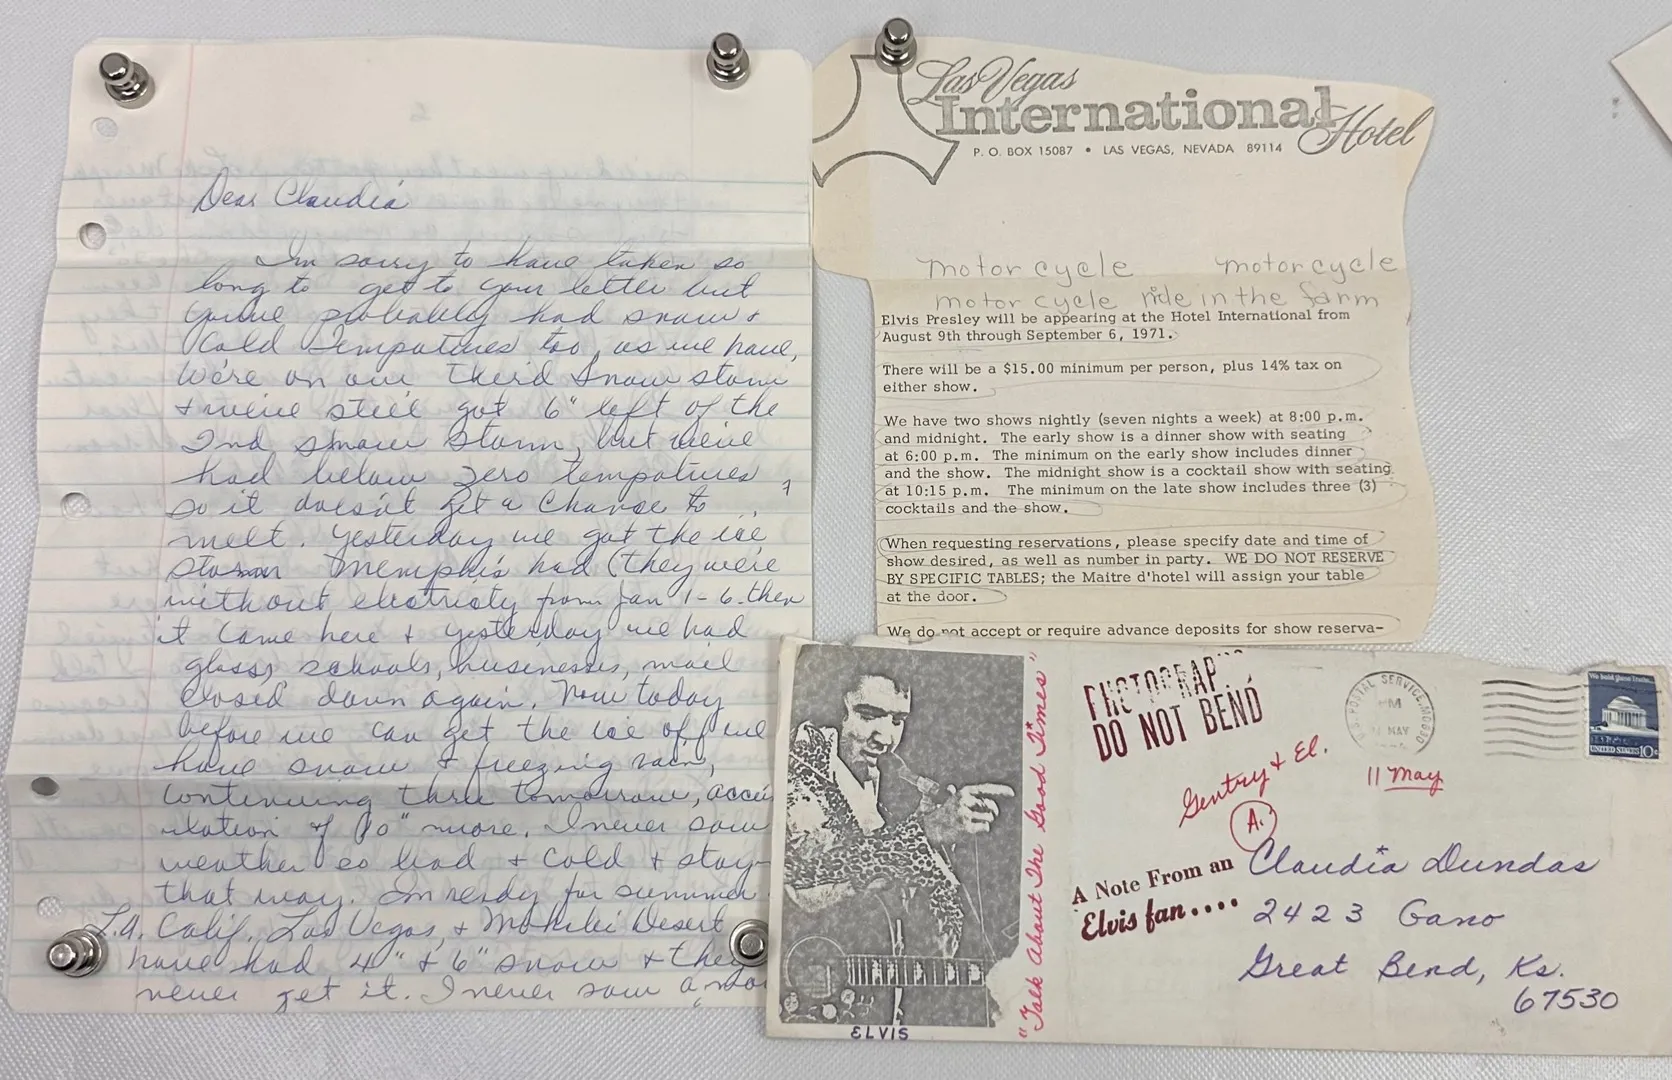 Dear Claudia
I'm sorry to have taken so
long to get to your letter but
you've probably had snow +
Cold Tempatures too, as we have,
We're on our third snow storm
+ we've still got 6" left of the
2nd snow storm, but we've
had below zero tempatures
so it doesn't get a chance to
melt. Yesterday we got the ice
storm Memphis had (they were
without electricty from Jan 1-6. then
it came here + yesterday we had
glass, schools, businesses, mail
closed down again. Now today
before we can get the ice off we
have snow + freezing rain,
continuing thru tomorrow,
of 10" more. I never saw
weather so bad + cold + stay
that way. Im ready for summer
L.A. Calif. Las Vegas, + Desert
have had 4" + 6" snow + they
never get it. I never saw a
Las Vegas
International
Hotel
P. O. BOX 15087 • LAS VEGAS, NEVADA 89114
motor cycle motor cycle
motor cycle ride in the farm
Elvis Presley will be appearing at the Hotel International from
August 9th through September 6, 1971.
There will be a $15.00 minimum per person, plus 14% tax on
either show.
We have two shows nightly (seven nights a week) at 8:00 p.m.
and midnight. The early show is a dinner show with seating
at 6:00 p.m. The minimum on the early show includes dinner
and the show. The midnight show is a cocktail show with seating
at 10:15 p.m. The minimum on the late show includes three (3)
cocktails and the show.
When requesting reservations, please specify date and time of
show desired, as well as number in party. WE DO NOT RESERVE
BY SPECIFIC TABLES; the Maitre d'hotel will assign your table
at the door.
We do not accept or require advance deposits for show reserva-
ELVIS
"Talk About The Good Times"
PHOTOGRAP
DO NOT BEND
POSTAL SERVICE
PM
MAY
We hold these Truths...
UNITED STATES 10c
Gentry + El.
11 May
A.
A Note From an
Elvis fan....
Claudia Dundas
2423 Gano
Great Bend, Ks.
67530